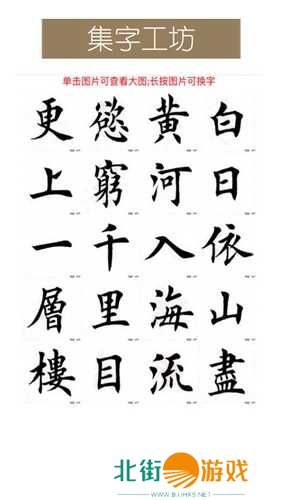 集字工坊
单击图片可查看大图;长按图片可换字
白日依山盡
黄河入海流
慾窮千里目
更上一層樓
北街游戏
WWW.BJJHXS.NET